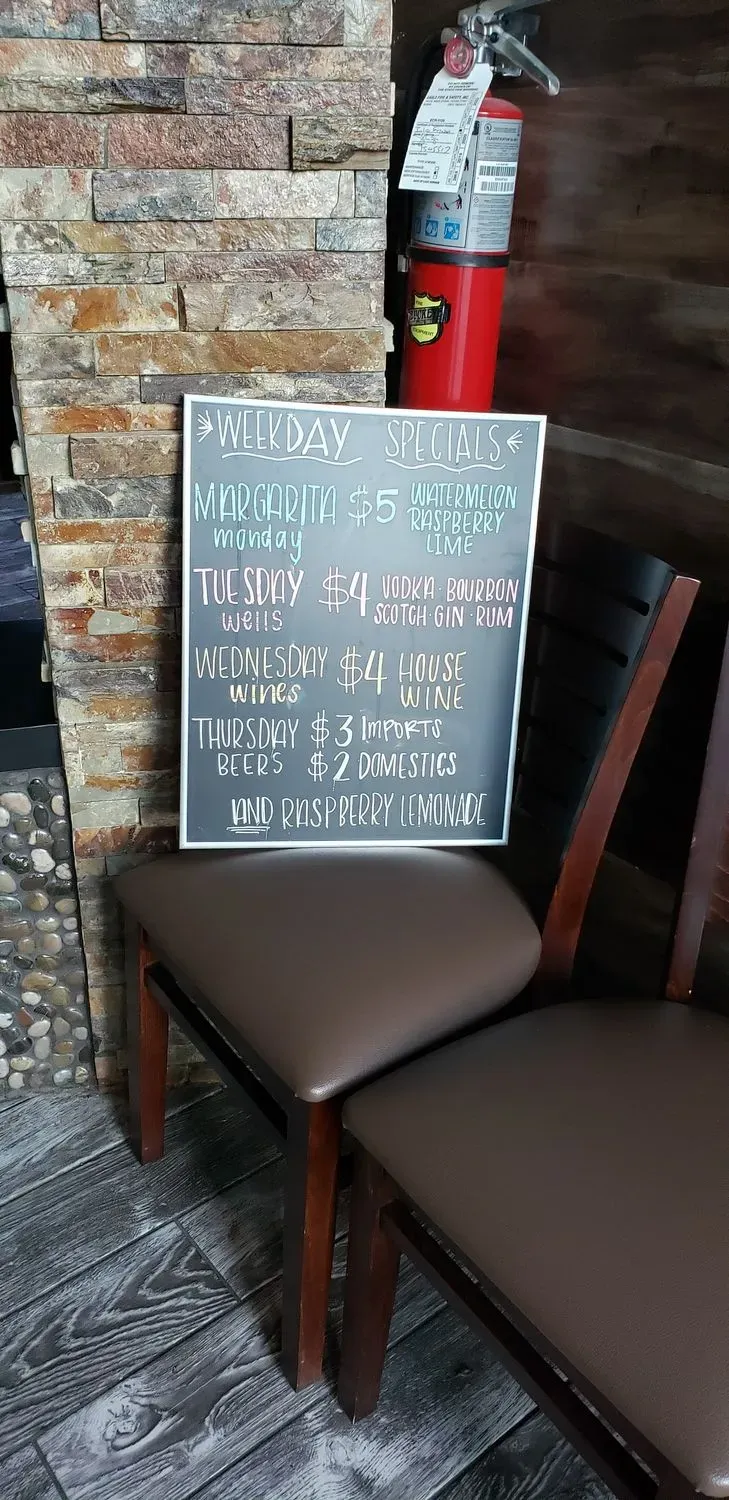 WEEKDAY SPECIALS
MARGARITA $5 WATERMELON
monday RASPBERRY
LIME
TUESDAY $4 VODKA · BOURBON
wells SCOTCH · GIN · RUM
WEDNESDAY $4 HOUSE
wines WINE
THURSDAY $3 IMPORTS
BEERS $2 DOMESTICS
AND RASPBERRY LEMONADE